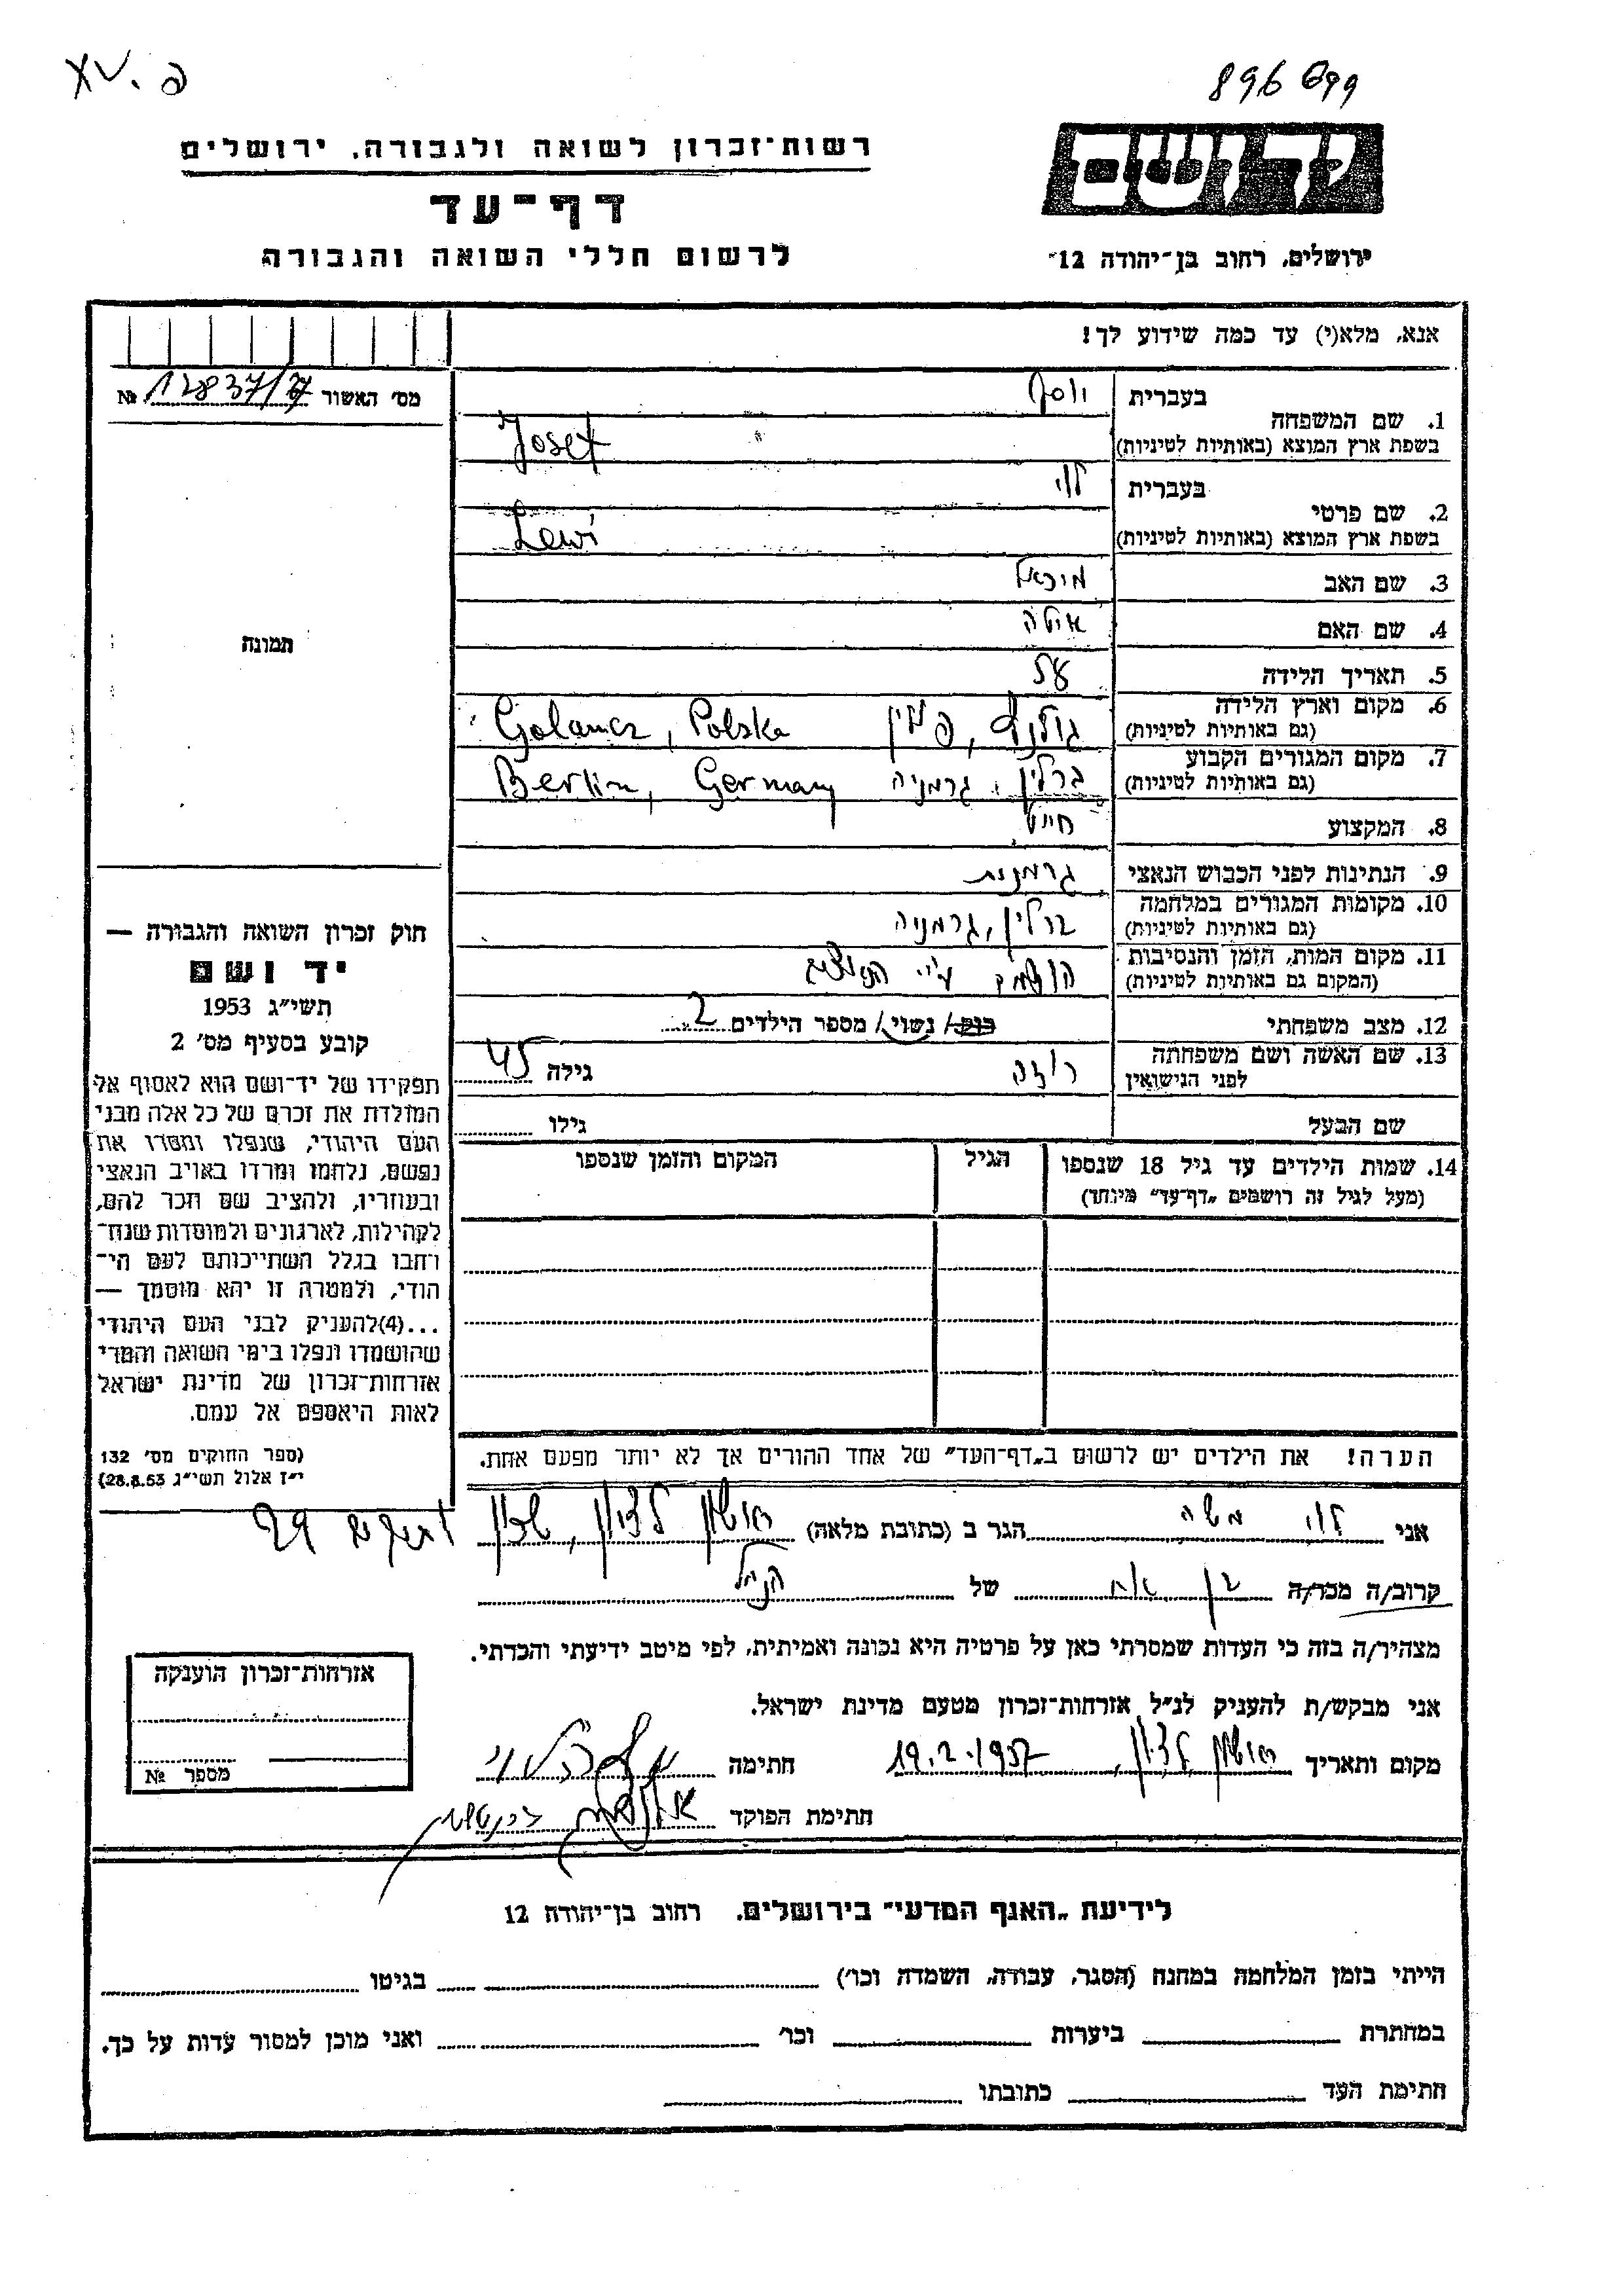 פ. XV
896 699
רשות־זכרון לשואה ולגבורה, ירושלים
דף־עד
לרשום חללי השואה והגבורה
יד ושם
ירושלים, רחוב בן־יהודה 12
אנא, מלא(י) עד כמה שידוע לך!
מס׳ האשור № 12837/27
1. שם המשפחה בעברית יוסף
בשפת ארץ המוצא (באותיות לטיניות) Josef
2. שם פרטי בעברית לוי
בשפת ארץ המוצא (באותיות לטיניות) Lewi
3. שם האב מיכאל
4. שם האם
5. תאריך הלידה
6. מקום וארץ הלידה (גם באותיות לטיניות) פולין Golancz, Polska
7. מקום המגורים הקבוע (גם באותיות לטיניות) ברלין, גרמניה Berlin, Germany
8. המקצוע חייט
9. הנתינות לפני הכבוש הנאצי גרמנית
10. מקומות המגורים במלחמה (גם באותיות לטיניות) ברלין, גרמניה
11. מקום המות, הזמן והנסיבות (המקום גם באותיות לטיניות) הושמד ע״י הנאצים
12. מצב משפחתי רוק/ נשוי/ מספר הילדים 2
13. שם האשה ושם משפחתה לפני הנישואין רוזה גילה 45
שם הבעל גילו
14. שמות הילדים עד גיל 18 שנספו הגיל המקום והזמן שנספו
(מעל לגיל זה רושמים „דף־עד״ מיוחד)
הערה! את הילדים יש לרשום ב„דף־העד״ של אחד ההורים אך לא יותר מפעם אחת.
תמונה
חוק זכרון השואה והגבורה —
יד ושם
תשי״ג 1953
קובע בסעיף מס׳ 2
תפקידו של יד־ושם הוא לאסוף אל
המולדת את זכרם של כל אלה מבני
העם היהודי, שנפלו ומסרו את
נפשם, נלחמו ומרדו באויב הנאצי
ובעוזריו, ולהציב שם וזכר להם,
לקהילות, לארגונים ולמוסדות שנח־
רבו בגלל השתייכותם לעם הי־
הודי, ולמטרה זו יהא מוסמך —
...(4)להעניק לבני העם היהודי
שהושמדו ונפלו בימי השואה והמרי
אזרחות־זכרון של מדינת ישראל
לאות היאספם אל עמם.
(ספר החוקים מס׳ 132
י״ז אלול תשי״ג 28.8.53)
אני לוי משה הגר ב (כתובת מלאה) ראשון לציון, שכון 29
קרוב/ה מכר/ה בן אח של הנ״ל
מצהיר/ה בזה כי העדות שמסרתי כאן על פרטיה היא נכונה ואמיתית, לפי מיטב ידיעתי והכרתי.
אני מבקש/ת להעניק לנ״ל אזרחות־זכרון מטעם מדינת ישראל.
מקום ותאריך ראשון לציון, 19.2.1957 חתימה
חתימת הפוקד
אזרחות־זכרון הוענקה
מספר №
לידיעת „האגף המדעי״ בירושלים, רחוב בן־יהודה 12
הייתי בזמן המלחמה במחנה (הסגר, עבודה, השמדה וכו׳) בגיטו
במחתרת ביערות וכו׳ ואני מוכן למסור עדות על כך.
חתימת העד כתובתו